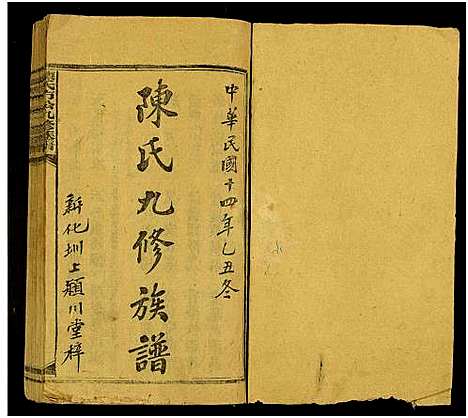 中華民國十四年乙丑冬
陳氏九修族譜
新化圳上穎川堂梓